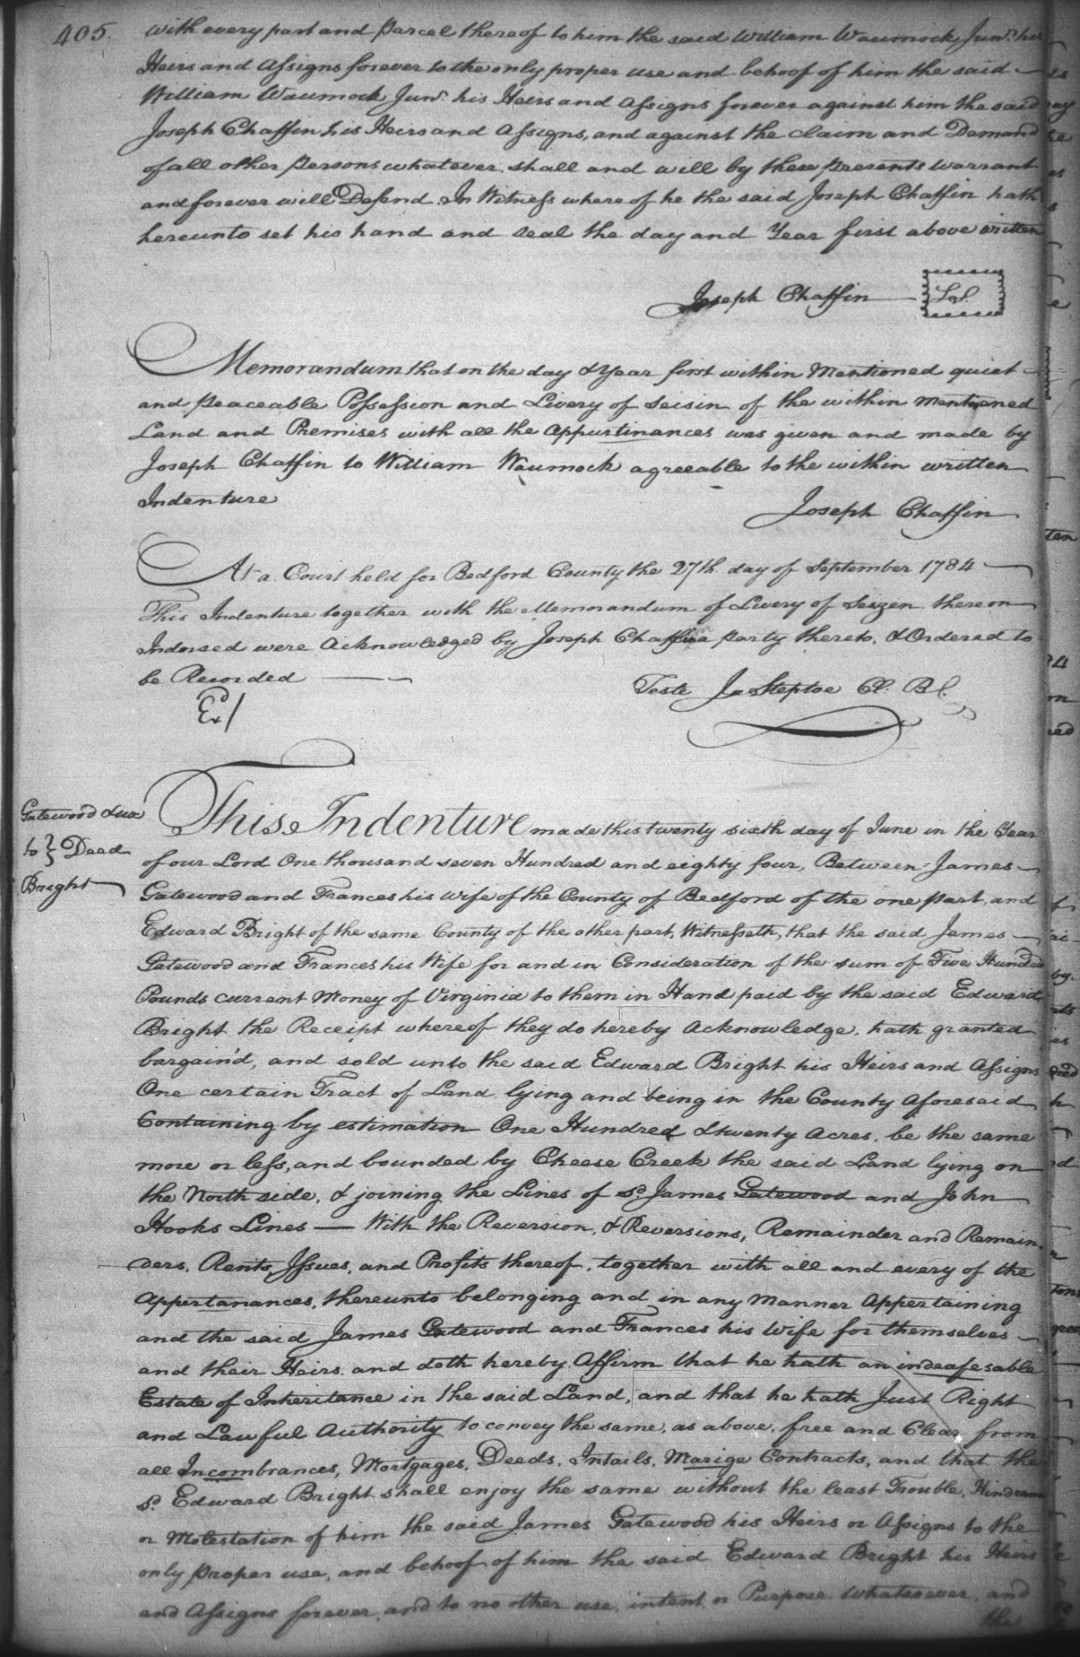 405.
with every part and parcel thereof to him the said William Waumock Junr. his
Heirs and Assigns forever to the only proper use and behoof of him the said
William Waumock Junr. his Heirs and Assigns forever against him the said
Joseph Chaffin his Heirs and Assigns, and against the claim and Demand
of all other persons whatever shall and will by these presents warrant
and forever will Defend. In Witness whereof he the said Joseph Chaffin hath
hereunto set his hand and seal the day and Year first above written
Joseph Chaffin L.S.
Memorandum that on the day & Year first within Mentioned quiet
and peaceable Possession and Livery of Seisin of the within mentioned
Land and Premises with all the appurtinances was given and made by
Joseph Chaffin to William Waumock agreeable to the within written
Indenture
Joseph Chaffin
At a Court held for Bedford County the 27th day of September 1784
This Indenture together with the Memorandum of Livery of Seizen thereon
Indorsed were Acknowledged by Joseph Chaffin party thereto, & Ordered to
be Recorded
Teste Js Steptoe Cl. B C
Exd
Gatewood & ux
to } Deed
Bright
This Indenture made this twenty sixth day of June in the Year
of our Lord One thousand seven Hundred and eighty four, Between James
Gatewood and Frances his wife of the County of Bedford of the one part, and
Edward Bright of the same County of the other part, Witnesseth, that the said James
Gatewood and Frances his Wife for and in Consideration of the sum of Five Hundred
Pounds current Money of Virginia to them in Hand paid by the said Edward
Bright the Receipt whereof they do hereby acknowledge, hath granted
bargain'd, and sold unto the said Edward Bright his Heirs and Assigns
One certain Tract of Land lying and being in the County aforesaid
Containing by estimation One Hundred & twenty Acres, be the same
more or less, and bounded by Cheese Creek the said Land lying on
the North side, & joining the Lines of sd. James Gatewood and John
Hooks Lines — With the Reversion, & Reversions, Remainder and Remain-
ders, Rents, Issues, and Profits thereof, together with all and every of the
Appertanances, thereunto belonging and in any Manner Appertaining
and the said James Gatewood and Frances his Wife for themselves
and their Heirs and doth hereby Affirm that he hath an indeafesable
Estate of Inheritance in the said Land, and that he hath Just Right
and Lawful Authority to convey the same, as above, free and Clear from
all Incombrances, Mortgages, Deeds, Intails, Marige Contracts, and that the
sd. Edward Bright shall enjoy the same without the least Trouble,
or Molestation of him the said James Gatewood his Heirs or Assigns to the
only proper use, and behoof of him the said Edward Bright his Heirs
and Assigns forever, and to no other use, intent or Purpose whatsoever, and
the